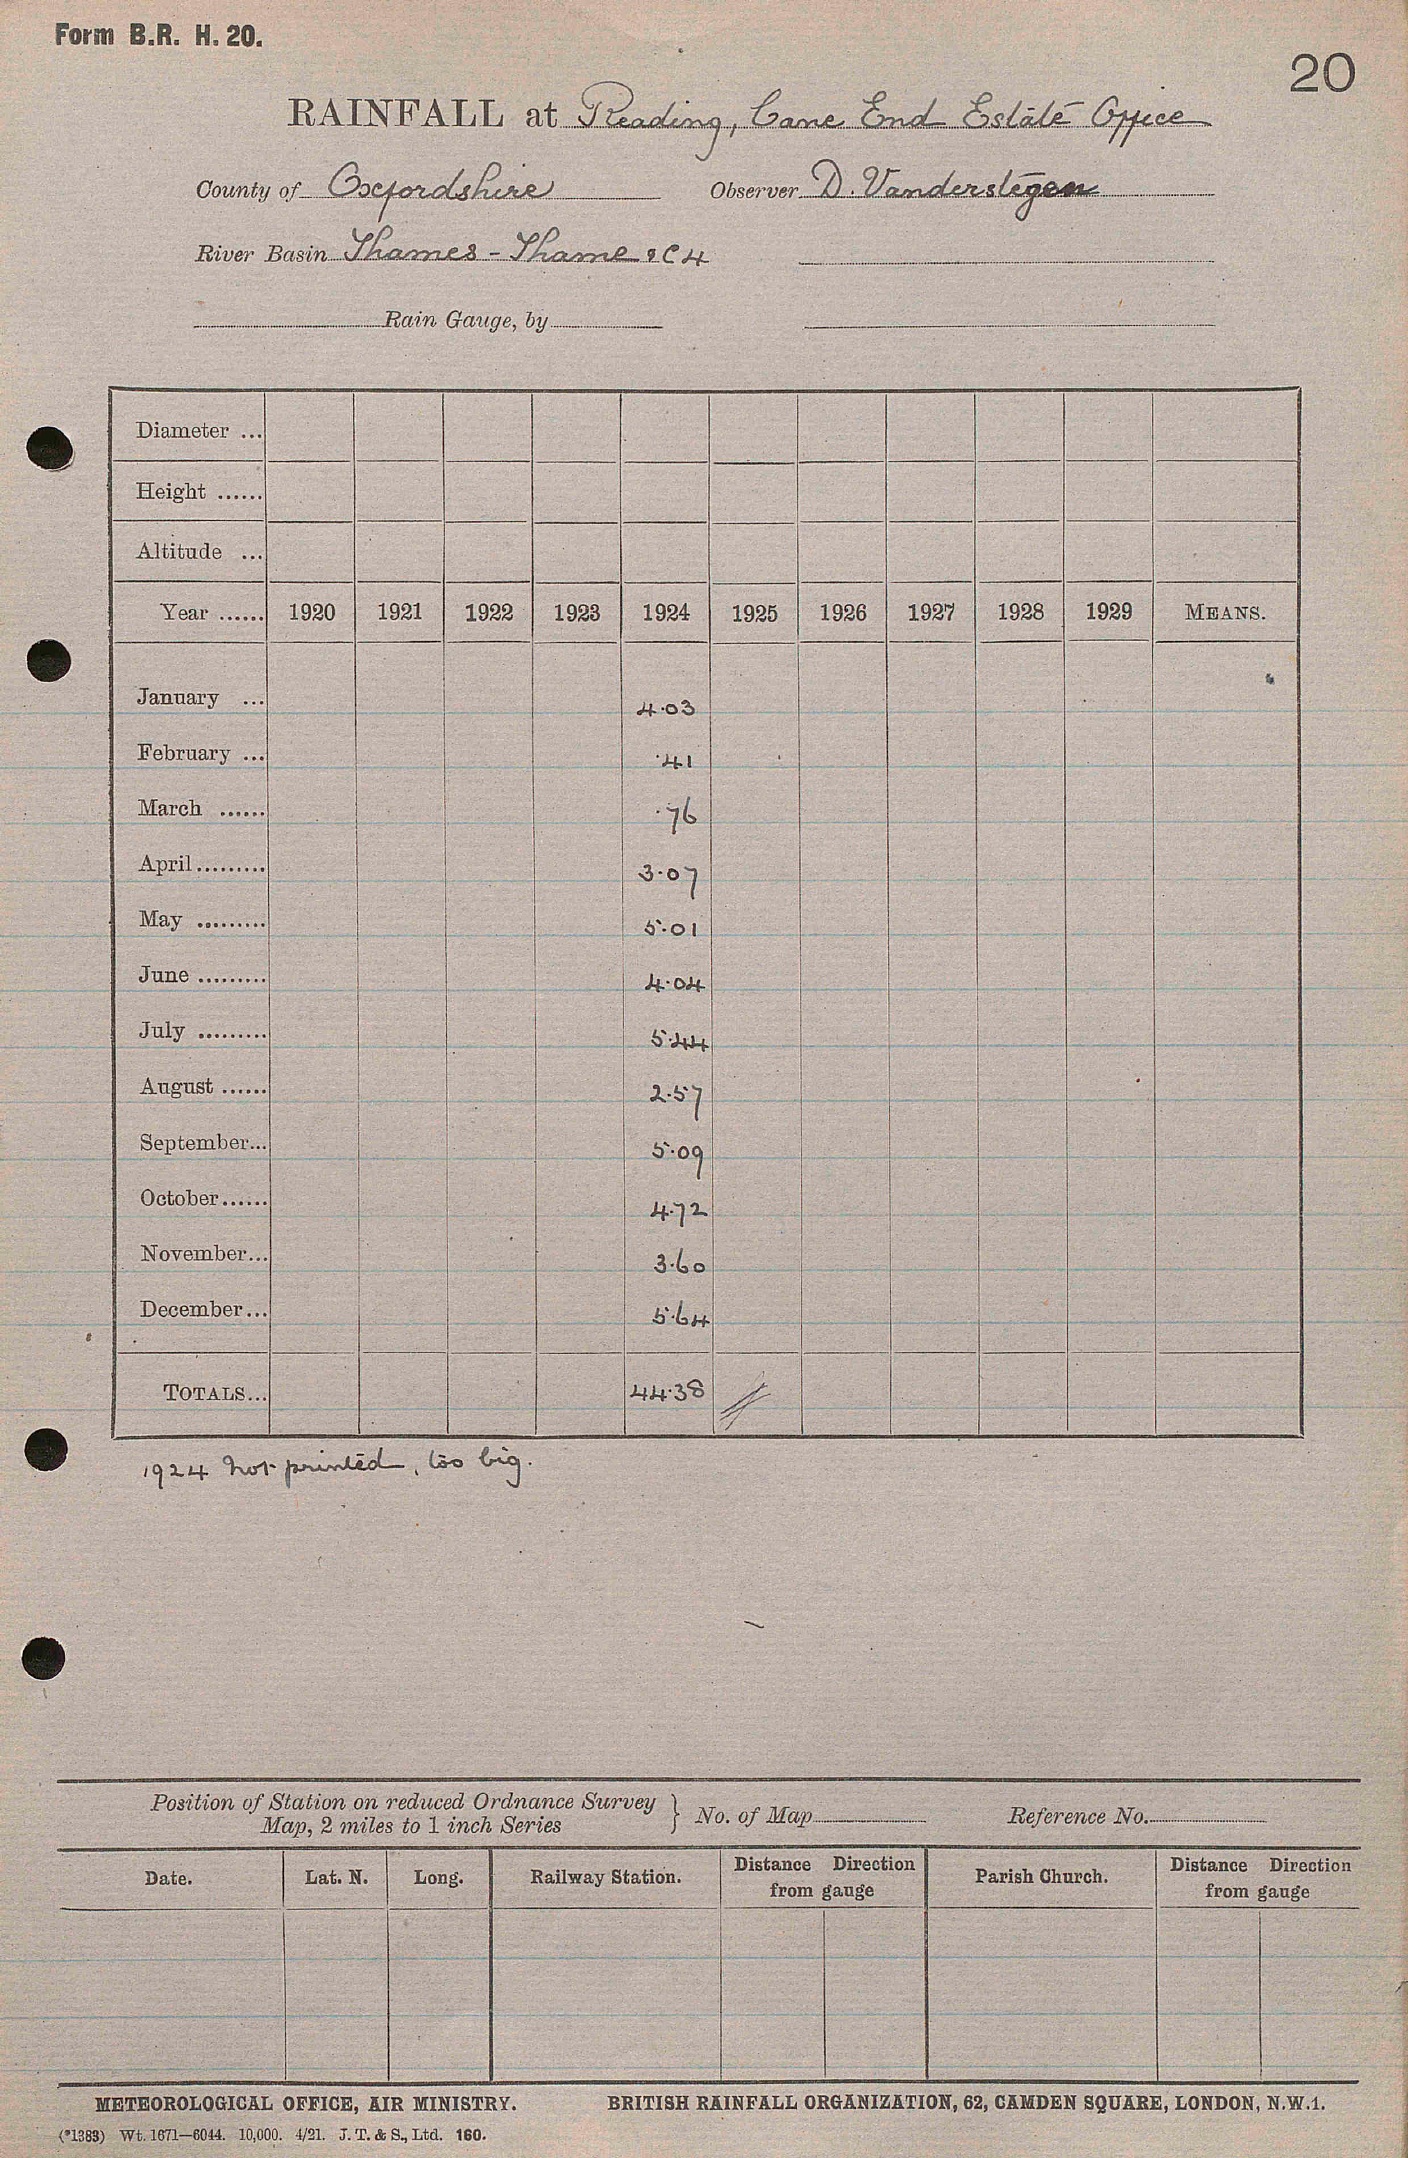 Form B.R. H. 20.
20
RAINFALL at Reading, Cane End Estate Office
County of Oxfordshire Observer D. Vanderstegen
River Basin Thames - Thame & C 4
Rain Gauge, by
Diameter ...
Height ......
Altitude ...
Year ...... 1920 1921 1922 1923 1924 1925 1926 1927 1928 1929 MEANS.
January ... 4.03
February ... .41
March ...... .76
April ......... 3.07
May ......... 5.01
June ......... 4.04
July ......... 5.44
August ...... 2.57
September... 5.09
October...... 4.72
November... 3.60
December... 5.64
TOTALS... 44.38
1924 not printed, too big.
Position of Station on reduced Ordnance Survey
Map, 2 miles to 1 inch Series } No. of Map Reference No.
Date. Lat. N. Long. Railway Station. Distance Direction from gauge Parish Church. Distance Direction from gauge
METEOROLOGICAL OFFICE, AIR MINISTRY. BRITISH RAINFALL ORGANIZATION, 62, CAMDEN SQUARE, LONDON, N.W.1.
(*1383) Wt. 1671—6044. 10,000. 4/21. J. T. & S., Ltd. 160.